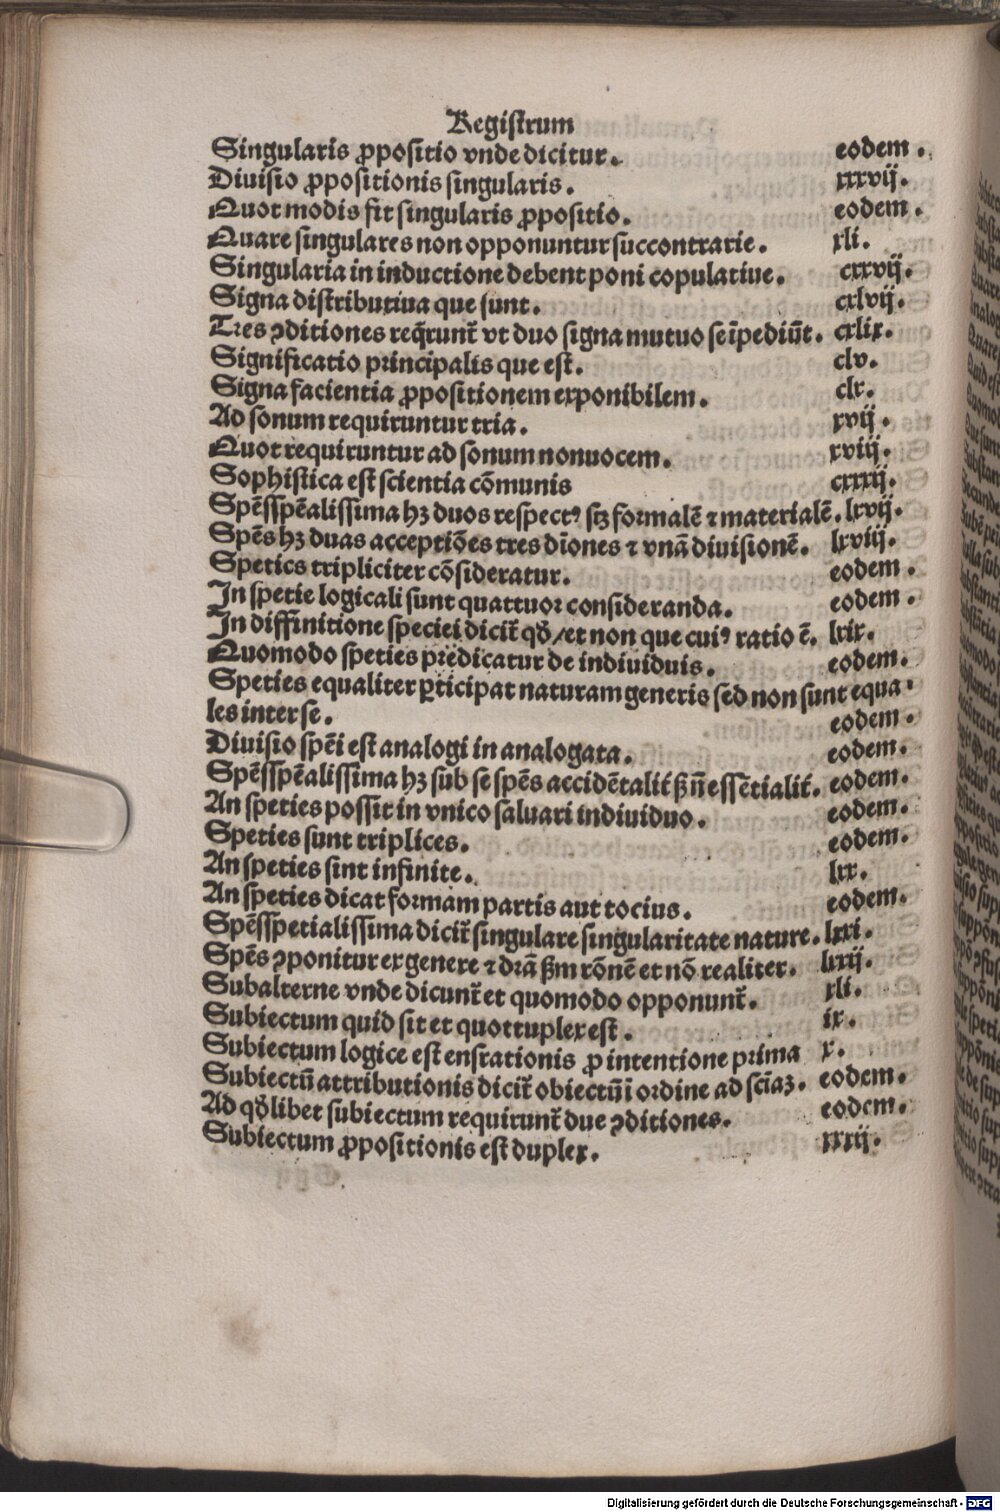 Registrum
Singularis ꝓpositio vnde dicitur. eodem.
Diuisio ꝓpositionis singularis. xxxvij.
Quot modis fit singularis ꝓpositio. eodem.
Quare singulares non opponuntur succontrarie. xli.
Singularia in inductione debent poni copulatiue. cxxvij.
Signa distributiua que sunt. cxlvij.
Tres ꝯditiones req̄runt᷑ vt duo signa mutuo se īpediūt. cxlix.
Significatio principalis que est. clv.
Signa facientia ꝓpositionem exponibilem. clx.
Ad sonum requiruntur tria. xvij.
Quot requiruntur ad sonum nonuocem. xviij.
Sophistica est scientia cōmunis cxxxij.
Spēsspēalissima hꝫ duos respectꝰ sꝫ formalē ⁊ materialē. lxvij.
Spēs hꝫ duas acceptiōes tres dīones ⁊ vnā diuisionē. lxviij.
Spetics tripliciter cōsideratur. eodem.
In spetie logicali sunt quattuor consideranda. eodem.
In diffinitione speciei dicit᷑ qđ/et non que cuiꝰ ratio ē. lxix.
Quomodo speties predicatur de indiuiduis. eodem.
Speties equaliter ꝑticipat naturam generis sed non sunt equa
les inter se. eodem.
Diuisio spēi est analogi in analogata. eodem.
Spēsspēalissima hꝫ sub se spēs accidētalit᷑ ꝭ n̄ essētialit᷑. eodem.
An speties possit in vnico saluari indiuiduo. eodem.
Speties sunt triplices. eodem.
An speties sint infinite. lxx.
An speties dicat formam partis aut tocius. eodem.
Spēsspetialissima dicit᷑ singulare singularitate nature. lxxi.
Spēs ꝯponitur ex genere ⁊ drā ẜm rōnē et nō realiter. lxxij.
Subalterne vnde dicunt᷑ et quomodo opponunt᷑. xli.
Subiectum quid sit et quottuplex est. ix.
Subiectum logice est ensrationis ꝓ intentione prima x.
Subiectū attributionis dicit᷑ obiectū i ordine ad sciaꝫ. eodem.
Ad qđlibet subiectum requirunt᷑ due ꝯditiones. eodem.
Subiectum ꝓpositionis est duplex. xxxij.
Digitalisierung gefördert durch die Deutsche Forschungsgemeinschaft - DFG